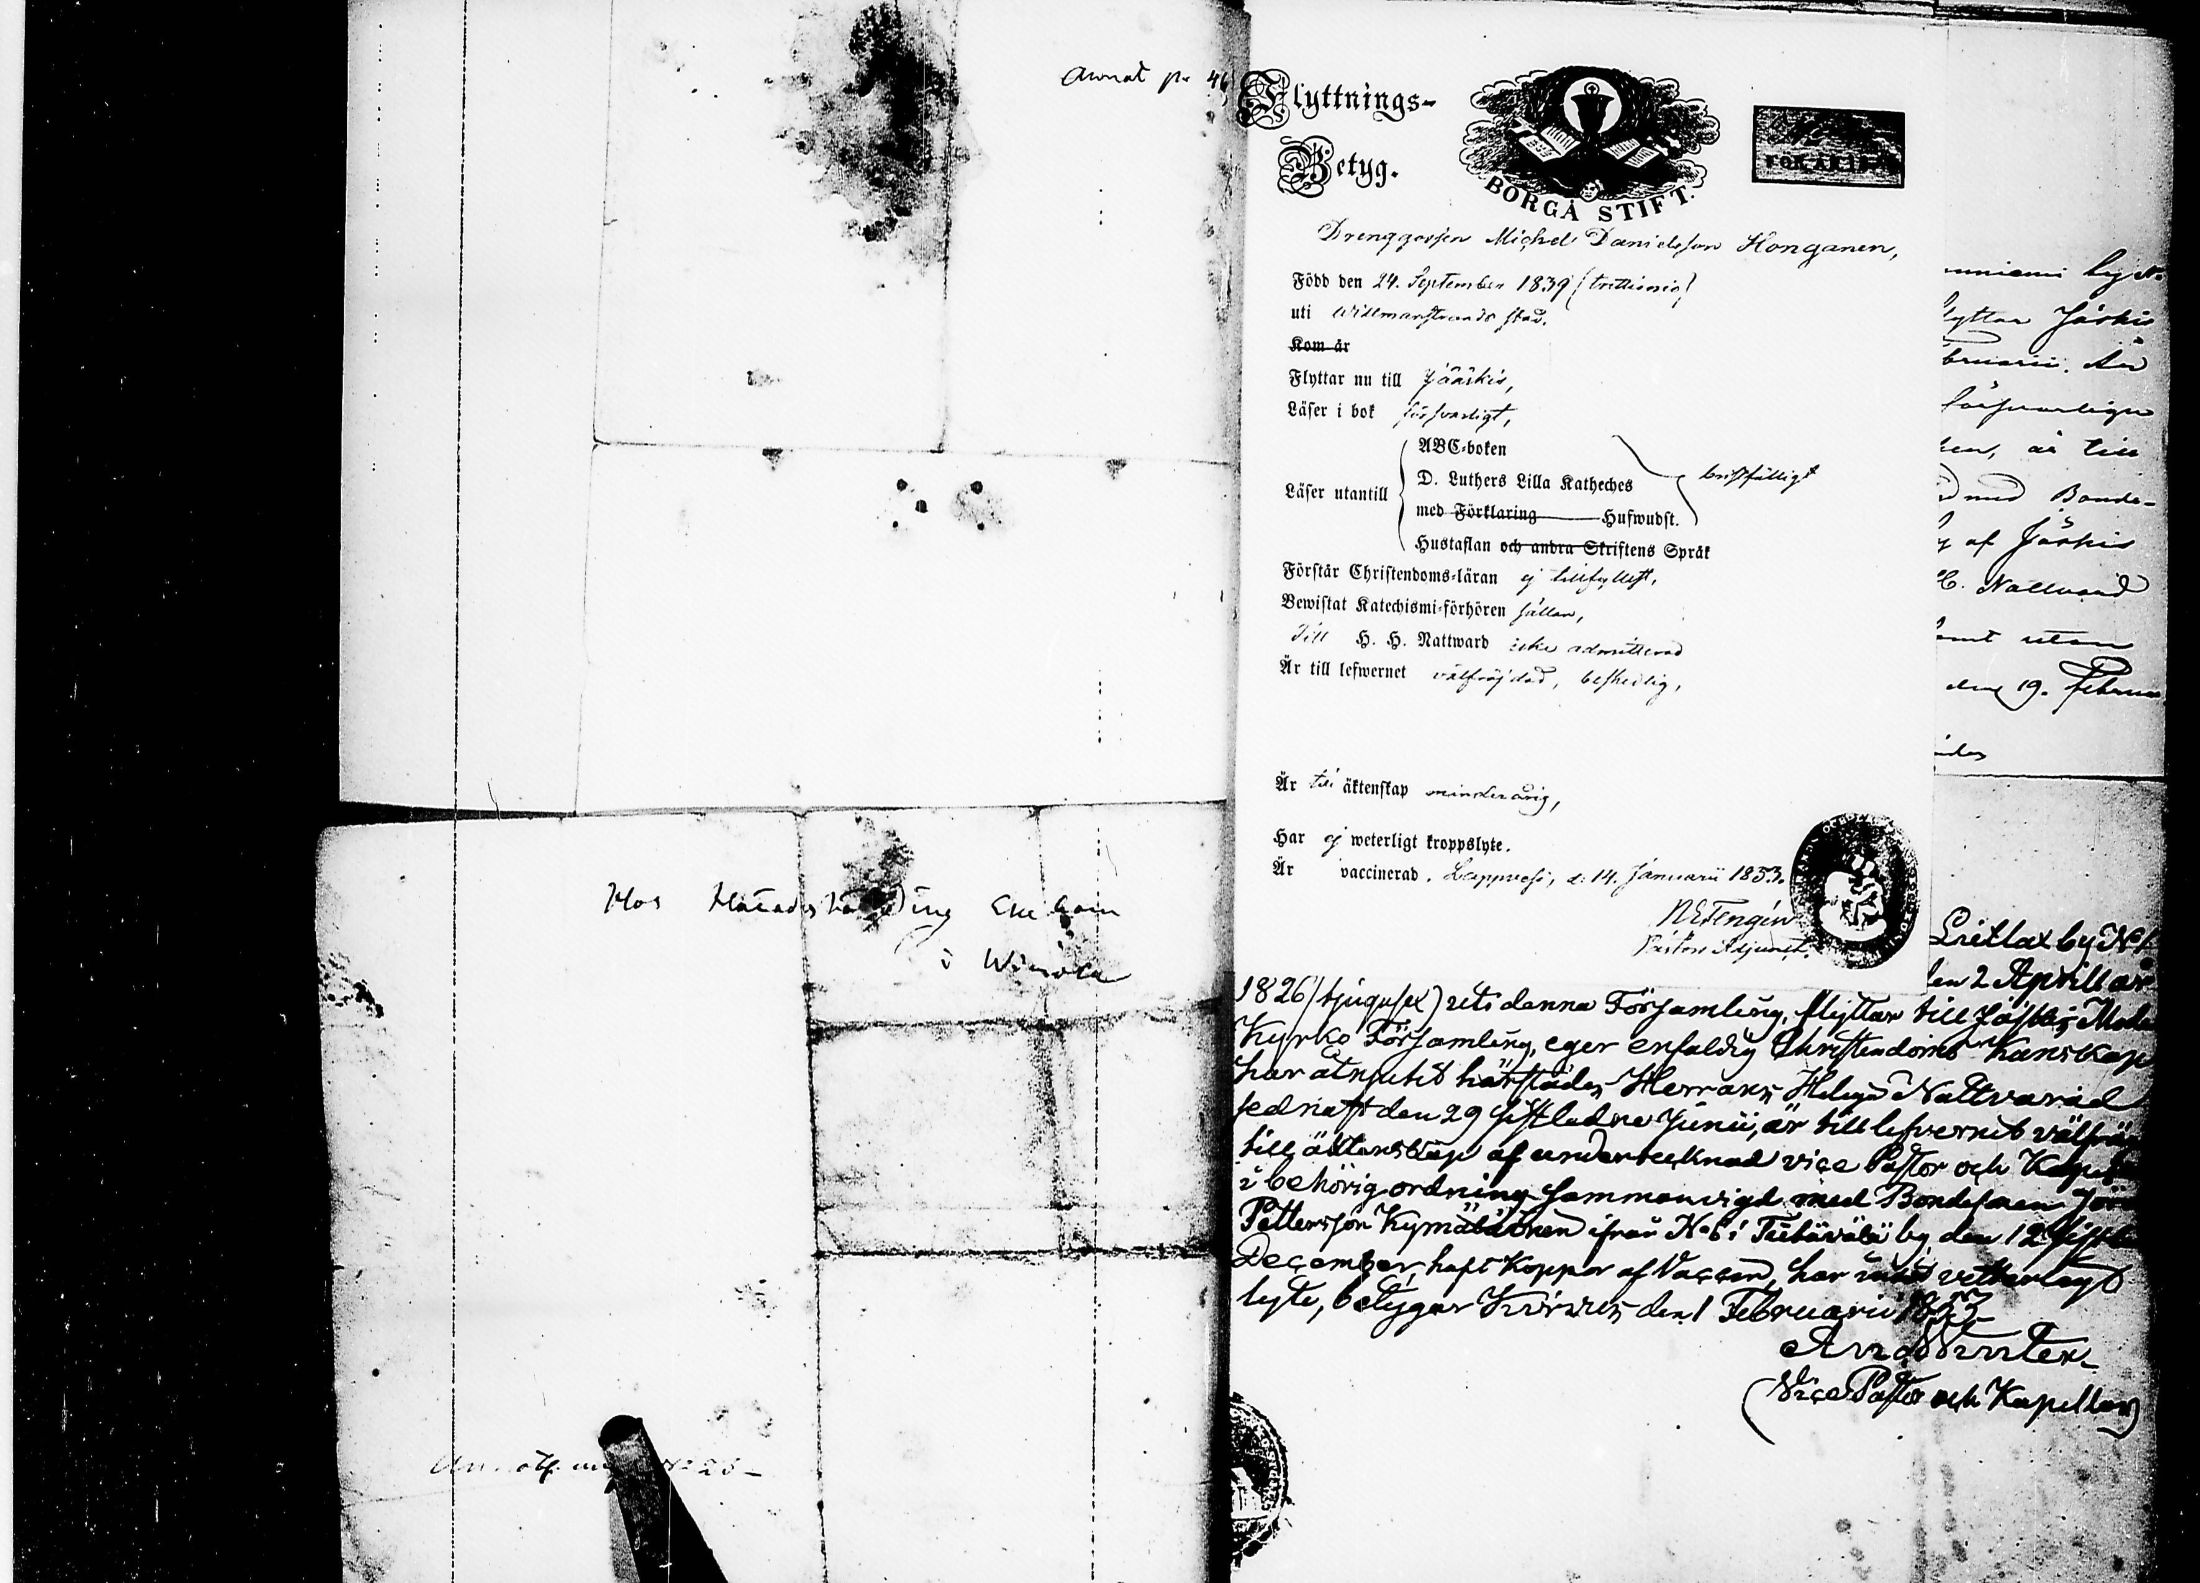 Annot pr 46
Hos Häradshöfding Ekebom
i Wirola
Flyttnings-
Betyg.
BORGÅ STIFT.
Drenggossen Michel Danielsson Honganen,
Född den 24. September 1839 (trettionio)
uti Willmanstrands stad.
Kom år
Flyttar nu till Jääskis,
Läser i bok försvarligt,
ABC-boken
Läser utantill D. Luthers Lilla Katheches bristfälligt
med Förklaring Hufwudst.
Hustaflan och andra Skriftens Språk
Förstår Christendoms-läran ej tillfyllest,
Bewistat Katechismi-förhören sällan,
Till H. H. Nattward icke admitterad
Är till lefwernet välfräjdad, beskedlig,
Är till äktenskap minderårig,
Har ej weterligt kroppslyte.
Är vaccinerad. Lappvesi, d. 14. Januarii 1853.
Pastors Adjunct.
by No
flyttar Jäskis
bruarii. År
försvarligen
en, är till
med Bonde-
af Jäskis
H. Nattvard
samt utan
den 19. Februa
by No 1.
den 2 Aprill år
1826 (tjugusex) uti denna Församling, flyttar till Jäskis Moder
Kyrko Församling, eger enfaldig Christendoms Kunskap
har åtnjutit härstädes Herrans Heliga Nattvard
sednast den 29 sistledne Junii, är till lefvernet välfräj
till äktenskap af undertecknad vice Pastor och Kapellan
i behörig ordning sammanvigd med Bondesonen Jöran
Pettersson Kymäläinen ifrån No 6 i by den 12 sistl
December, haft Koppor af Vaccin, har intet vetterligt
lyte, betygar Kirvus den 1 Februarii 1853
And Winter
(Vice Pastor och Kapellan)